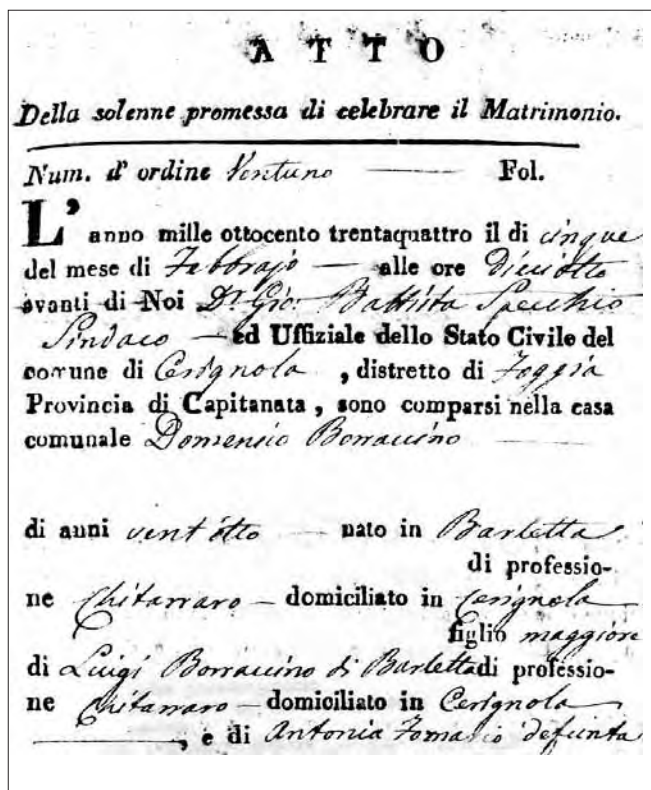 ATTO
Della solenne promessa di celebrare il Matrimonio.
Num. d' ordine Ventuno — Fol.
L' anno mille ottocento trentaquattro il di cinque
del mese di Febbrajo — alle ore Dieciotto
avanti di Noi Dr. Gio: Battista Specchio
Sindaco — ed Uffiziale dello Stato Civile del
comune di Cerignola , distretto di Foggia
Provincia di Capitanata , sono comparsi nella casa
comunale Domenico Borraccino —
di anni vent'otto — nato in Barletta
di professio-
ne Chitarraro — domiciliato in Cerignola
figlio maggiore
di Luigi Borraccino di Barletta di professio-
ne Chitarraro — domiciliato in Cerignola
—, e di Antonia defunta